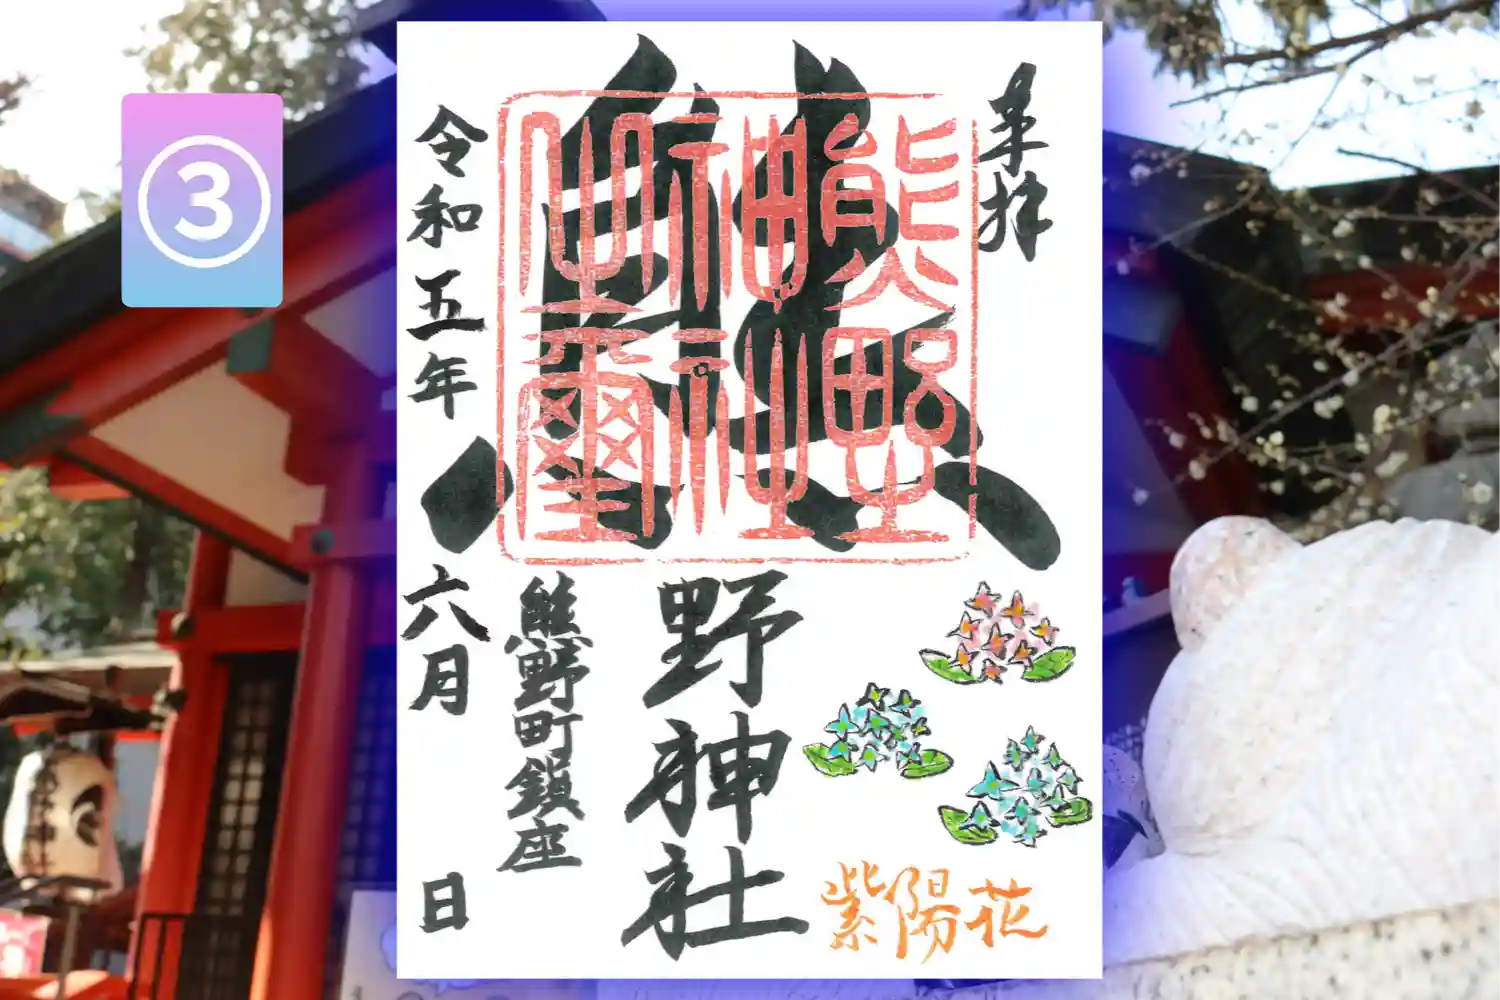 ③
奉拝
熊野神社
熊野
神社
璽
紫陽花
熊野町鎮座
令和五年 六月 日